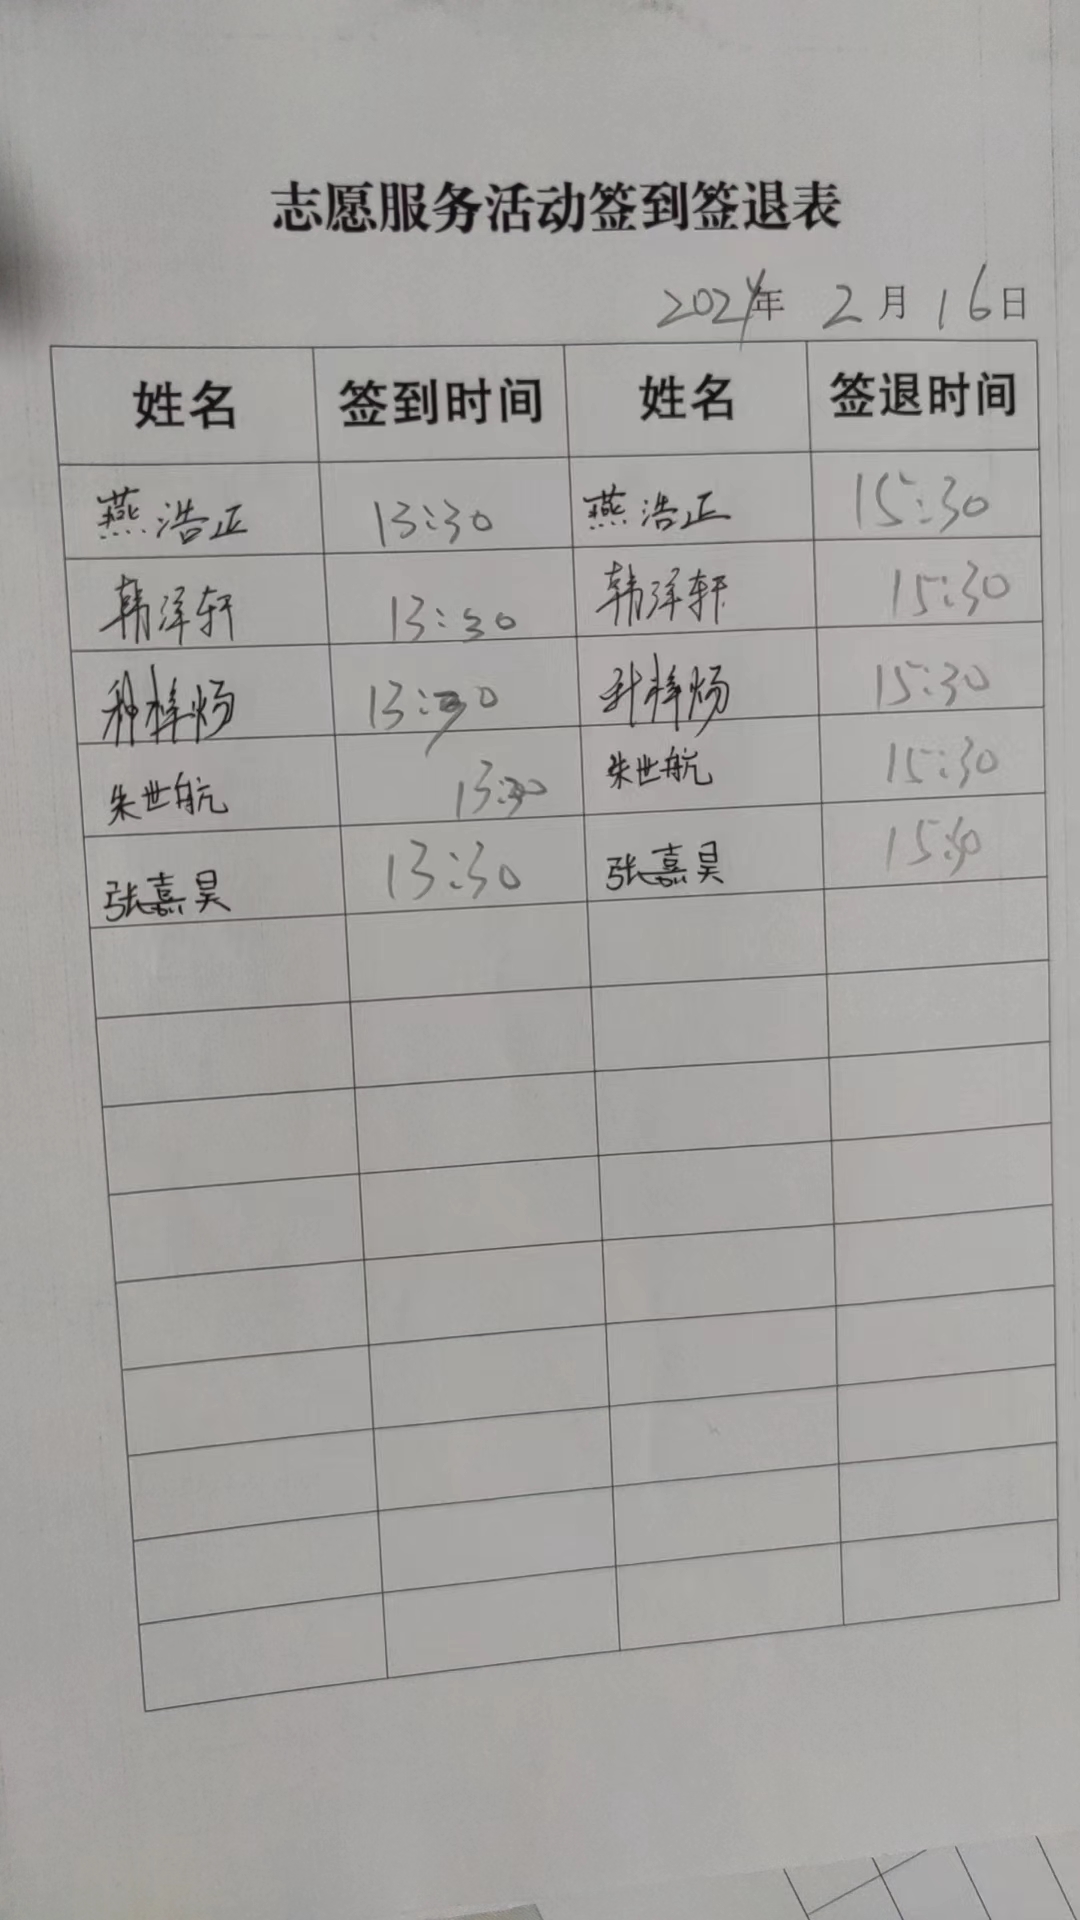 志愿服务活动签到签退表
2024年 2月 16日
姓名 签到时间 姓名 签退时间
燕浩正 13:30 燕浩正 15:30
韩洋轩 13:30 韩洋轩 15:30
种梓炀 13:30 种梓炀 15:30
朱世航 13:30 朱世航 15:30
张嘉昊 13:30 张嘉昊 15:30